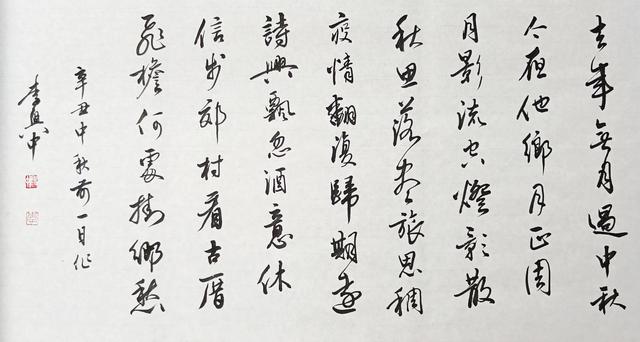 去年無月過中秋
今夜他鄉月正周
月影流空燈影散
秋思落盡旅思稠
疫情翻復歸期遠
詩興飄忽酒意休
信步郊村看古厝
飛檐何處掛鄉愁
辛丑中秋前一日作
李興中